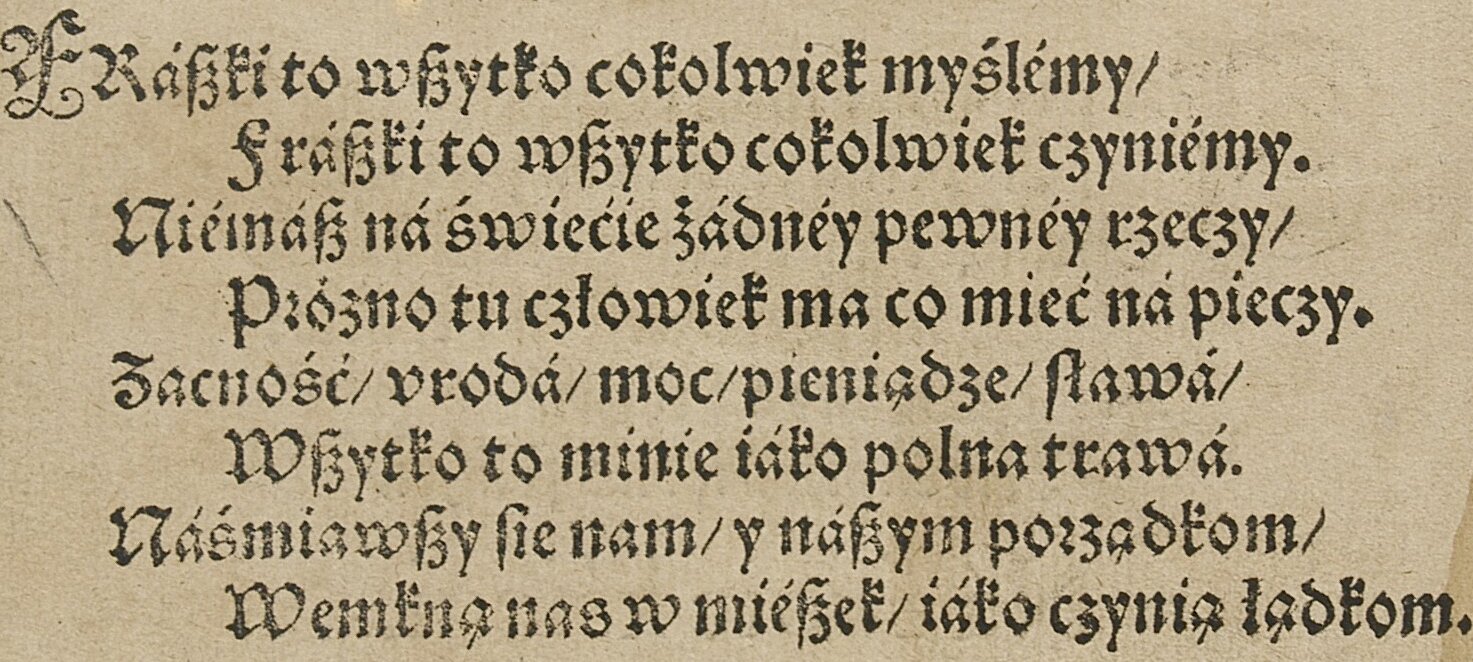 FRáßki to wßytko cokolwiek myślémy/
Fráßki to wßytko cokolwiek czyniémy.
Niémáß ná świećie żádnéy pewnéy rzeczy/
Prózno tu człowiek ma co mieć ná pieczy.
Zacność/ vrodá/ moc/ pieniądze/ sławá/
Wßytko to minie iáko polna trawá.
Náśmiawßy sie nam/ y náßym porządkom/
Wemkną nas w miéßek/ iáko czynią łądkom.